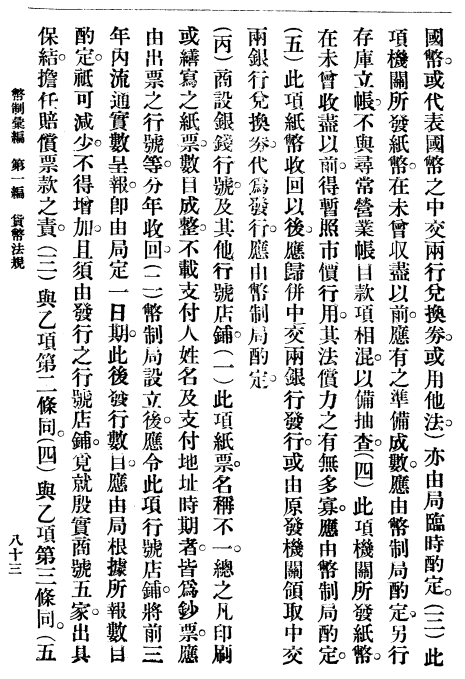 國幣。或代表國幣之中交兩行兌換劵。或用他法。)亦由局臨時酌定。(三)此
項機關所發紙幣。在未曾収盡以前。應有之準備成數。應由幣制局酌定。另行
存庫立帳。不與尋常營業帳目款項相混。以備抽查。(四)此項機關所發紙幣。
在未曾收盡以前。得暫照市價行用。其法償力之有無多寡。應由幣制局酌定。
(五)此項紙幣收回以後。應歸併中交兩銀行發行。或由原發機關領取中交
兩銀行兌換劵。代爲發行。應由幣制局酌定。
(丙)商設銀錢行號及其他行號店鋪。(一)此項紙票。名稱不一。總之凡印刷
或繕寫之紙票。數目成整。不載支付人姓名及支付地址時期者。皆爲鈔票。應
由出票之行號等。分年收回。(二)幣制局設立後。應令此項行號店鋪。將前三
年內流通實數呈報。卽由局定一日期。此後發行數目。應由局根據所報數目
酌定。祇可減少。不得增加。且須由發行之行號店鋪。覓就殷實商號五家出具
保結。擔任賠償票款之責。(三)與乙項第二條同。(四)與乙項第三條同。(五
幣制彙編 第一編 貨幣法規
八十三